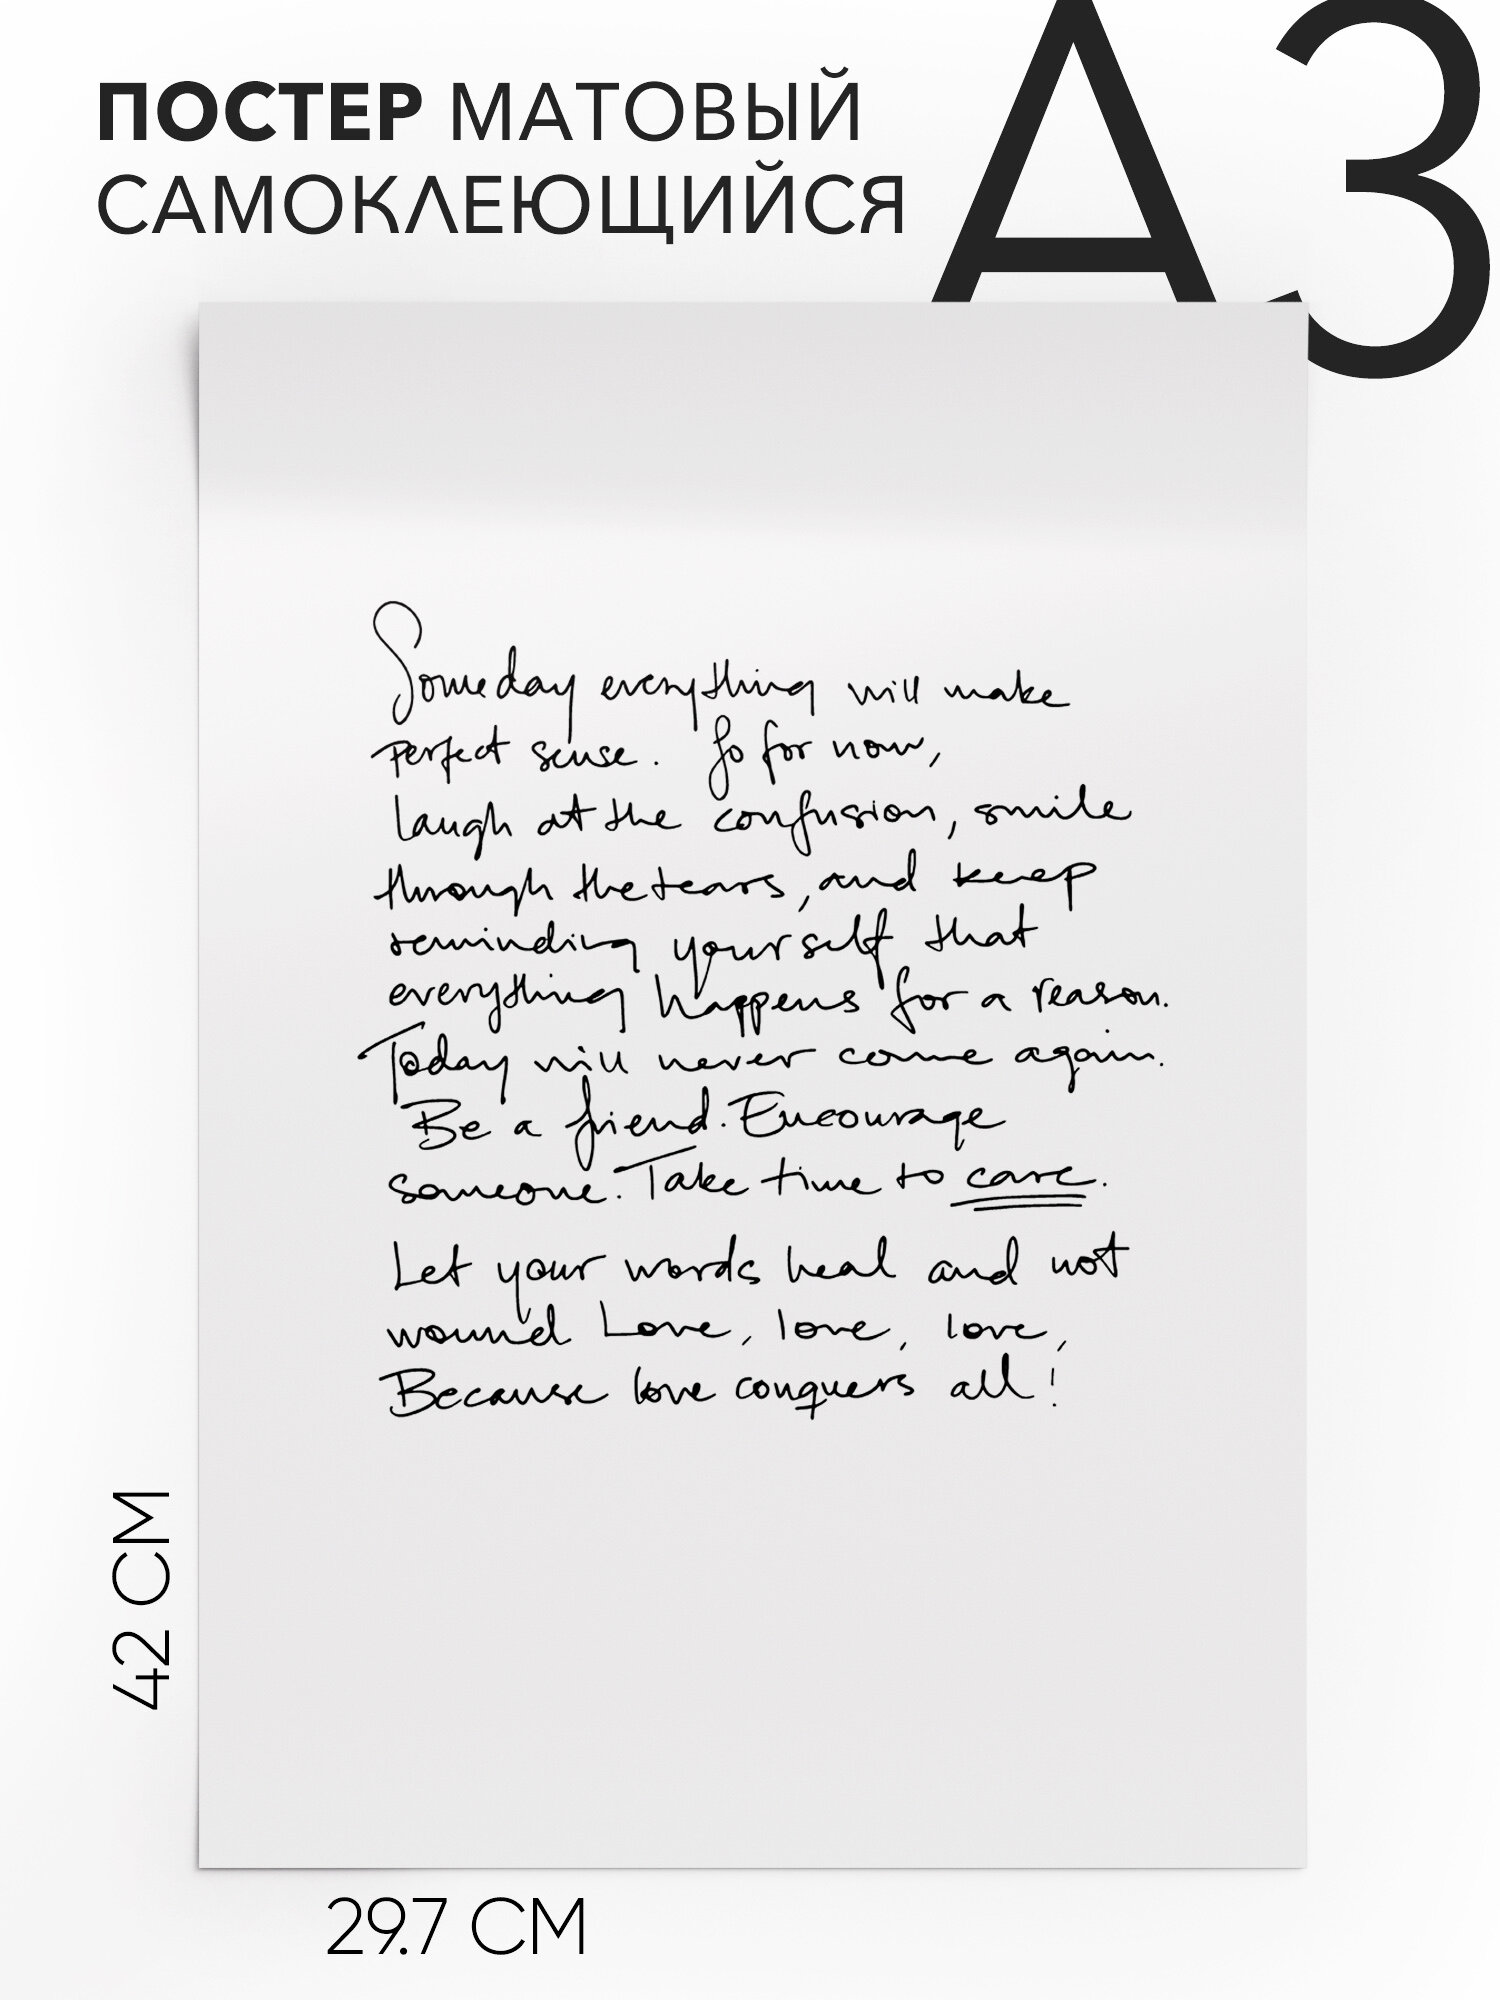 ПОСТЕР МАТОВЫЙ
САМОКЛЕЮЩИЙСЯ
А3
Someday everything will make
perfect sense. So for now,
laugh at the confusion, smile
through the tears, and keep
reminding yourself that
everything happens for a reason.
Today will never come again.
Be a friend. Encourage
someone. Take time to care.
Let your words heal and not
wound Love, love, love,
Because love conquers all!
42 СМ
29.7 СМ